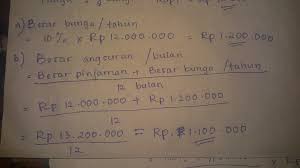 a) Besar bunga / tahun
= 10% x Rp 12.000.000 = Rp 1.200.000
b) Besar angsuran / bulan
= Besar pinjaman + Besar bunga / tahun
12 bulan
= Rp 12.000.000 + Rp 1.200.000
12
= Rp. 13.200.000 = Rp. 1.100.000
12